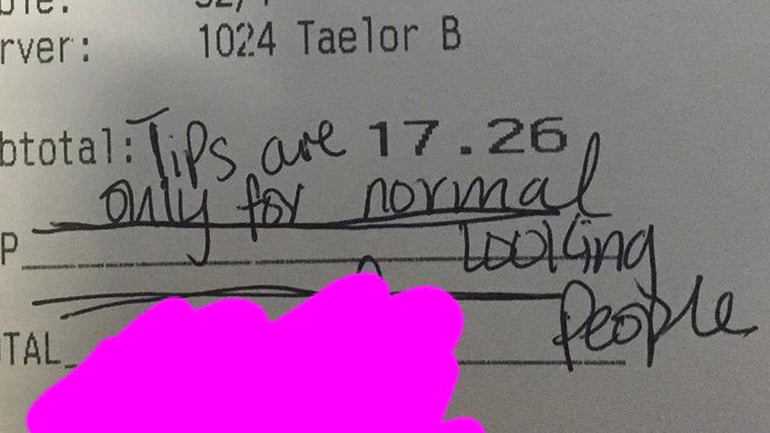 1024 Taelor B
rver:
btotal: Tips are 17.26
only for normal
P looking
people
TAL